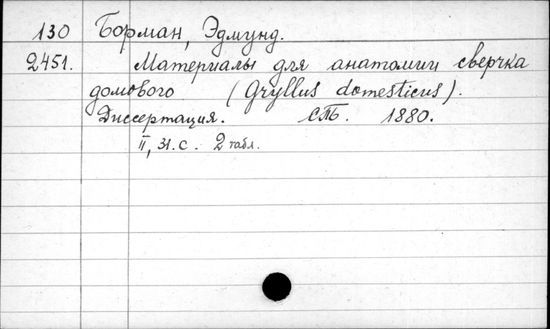 130 Борман, Эдмунд.
2451. Материалы для анатомии сверчка
домового (Gryllus domesticus).
Диссертация. СПБ. 1880.
II, 31. с. 2 табл.